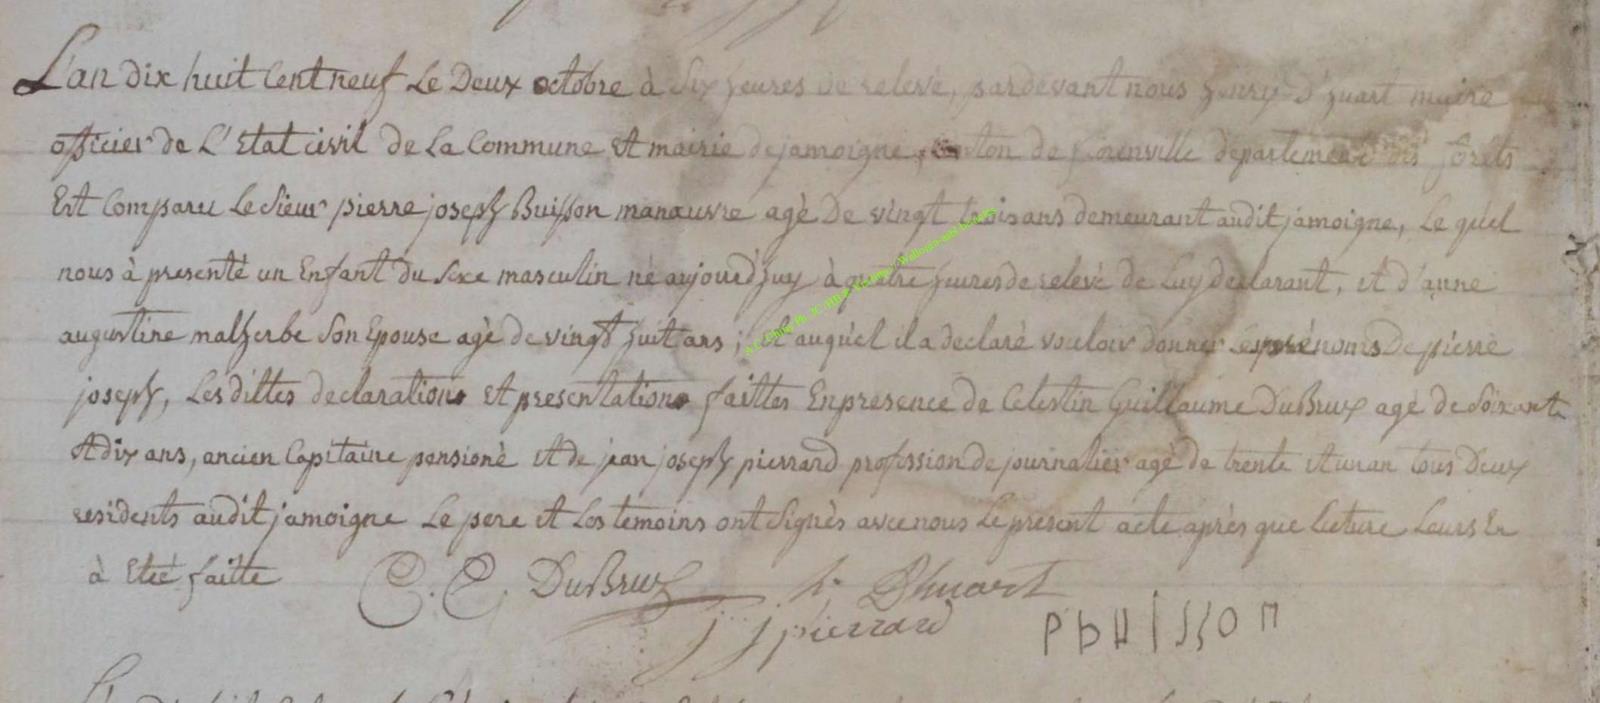 L'an dix huit Cent neuf Le Deux octobre à Six heures de relevé, pardevant nous henry d'huart maire
officier de L'Etat civil de La Commune Et mairie de jamoigne, Canton de florenville departement des forêts
Est Comparu Le Sieur pierre joseph Buisson manœuvre agè De vingt trois ans demeurant audit jamoigne, Le quel
nous à presenté un Enfant du Sexe masculin né aujourd'huy à quatre heures de relevé de Luy declarant, et d'anne
augustine malherbe Son Epouse agè de vingt huit ans; et auquel il a declaré vouloir donner Les prénoms De pierre
joseph, Les dittes declarations Et presentations faittes En presence de Celestin Guillaume DuBrux agé de Soixante
Et dix ans, ancien Capitaine pensioné Et de jean joseph pierrard profession de journalier agé de trente Et un an tous Deux
residents audit jamoigne Le pere Et Les temoins ont Signès avec nous Le present acte après que lecture Leurs En
à Eté faitte
C. G. DuBrux h. Dhuart
j j pierrard
P b U I S S O N